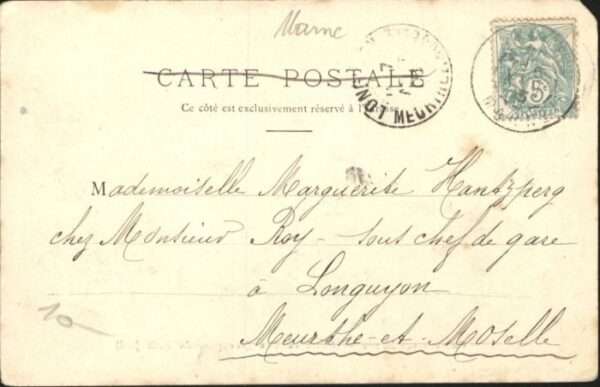 Marne
CARTE POSTALE
Ce côté est exclusivement réservé à l'adresse
5
Mademoiselle Marguerite Hantzperg
chez Monsieur Roy - sous chef de gare
à Longuyon
Meurthe-et-Moselle
10